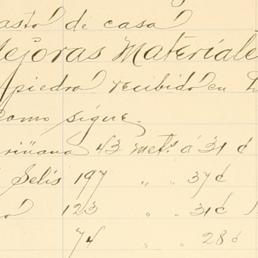 asto de casa
Mejoras Materiale
piedra recibido en
como sigue.
riñana 43 mets. á 31 ¢
Selis 197 " " 37¢
123 " " 31¢
74 " 28¢